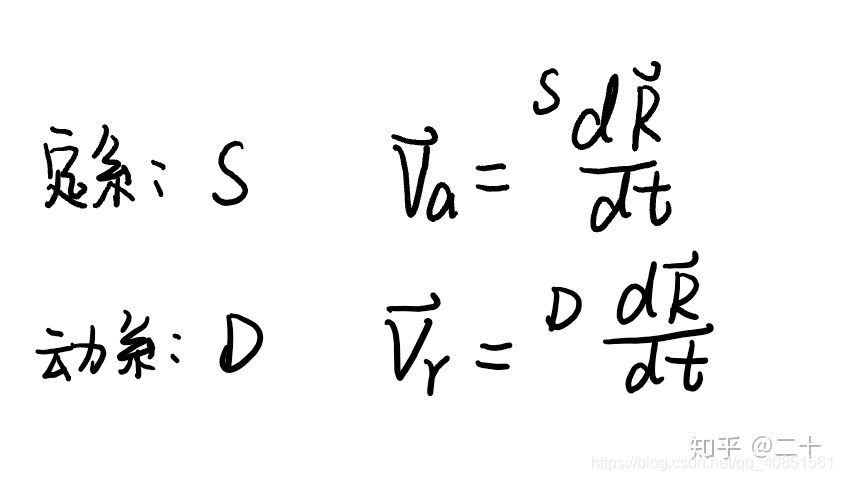 定系: S $\vec{V}_a = \frac{{}^S d\vec{R}}{dt}$
动系: D $\vec{V}_r = \frac{{}^D d\vec{R}}{dt}$
知乎 @二十
https://blog.csdn.net/qq_40851561